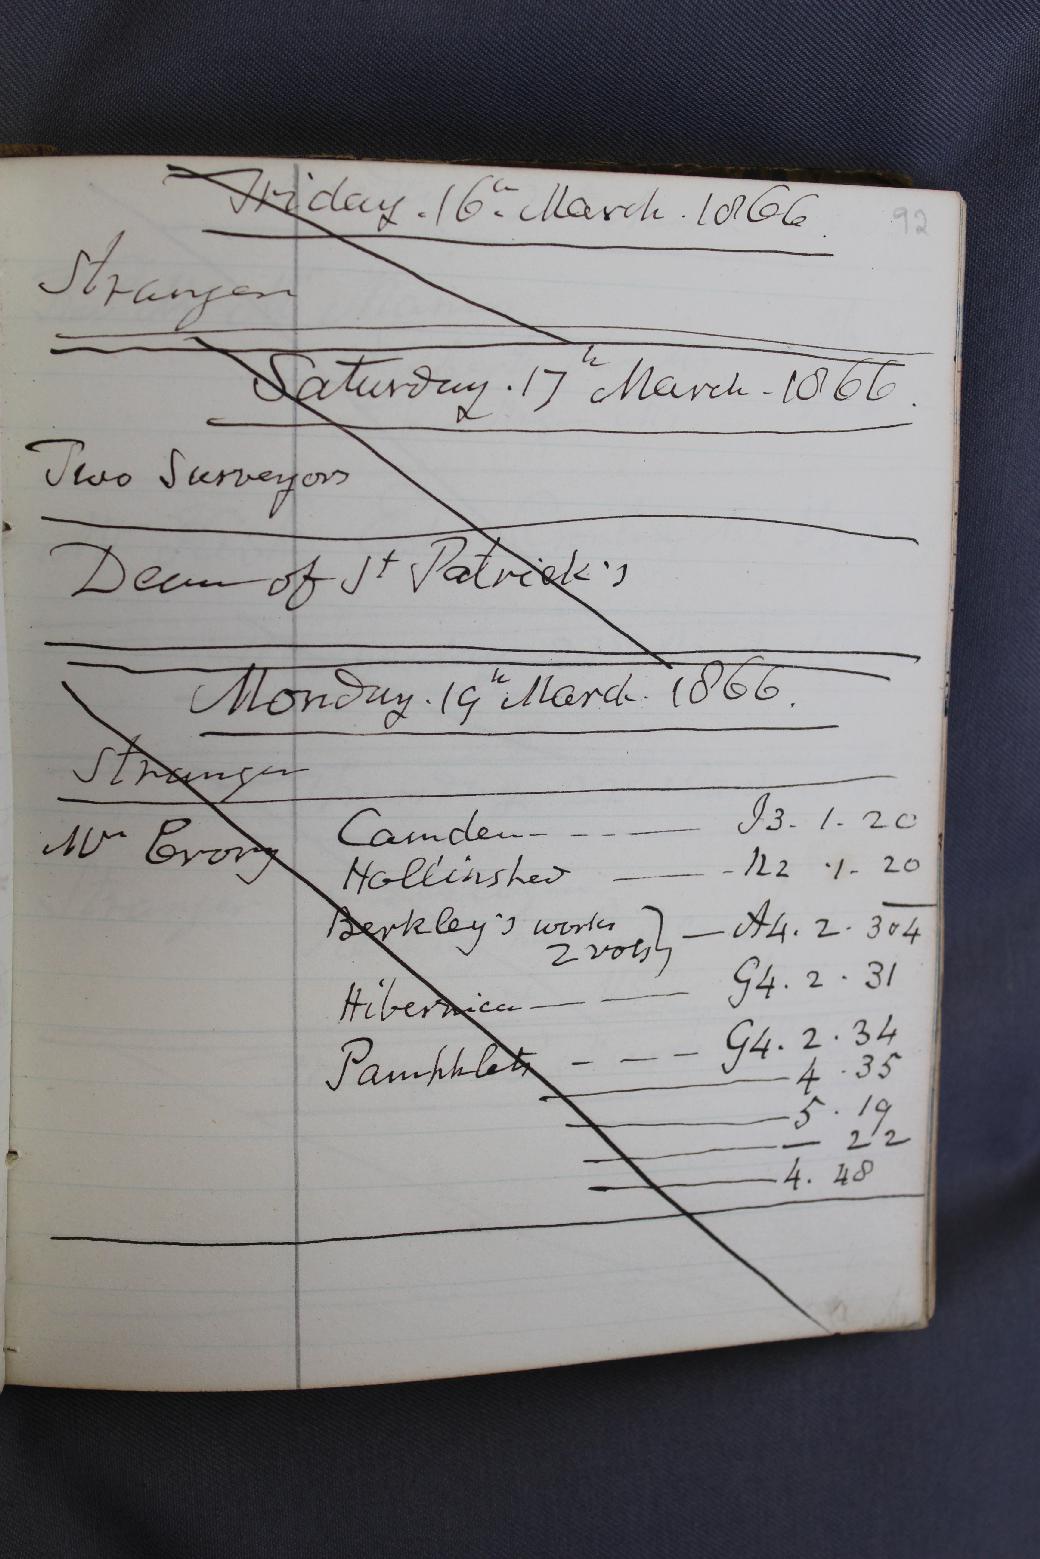 92
Friday. 16th March. 1866.
Stranger
Saturday. 17th March - 1866.
Two Surveyors
Dean of St Patrick's
Monday. 19th March. 1866.
Stranger
Mr Crory Camden - - - — J3. 1. 20
Hollinshed — - N2 . 1. 20
Berkley's works
2 vols} — A4. 2. 304
Hibernica — — — G4. 2. 31
Pamphlets - - - G4. 2. 34
— 4 . 35
— 5 . 19
— — 22
— 4. 48